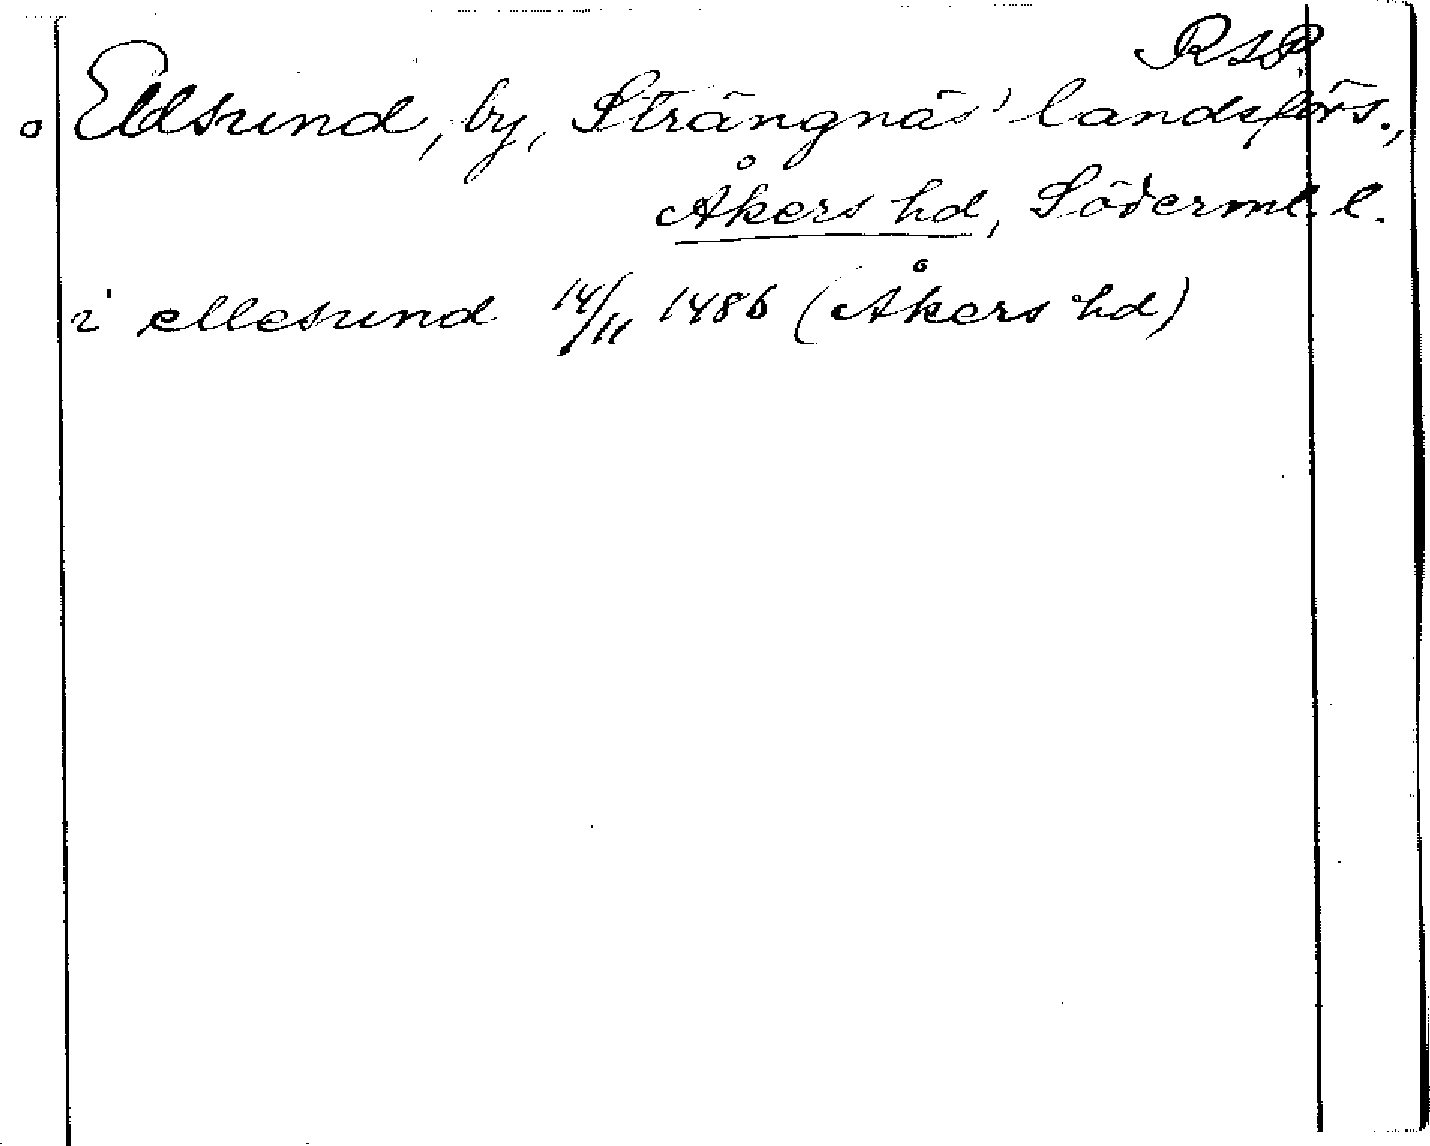 RAP
o Eldsund, by, Strängnäs' landsförs.,
Åkers hd, Söderml. l.
i ellesund 14/11 1486 (Åkers hd)